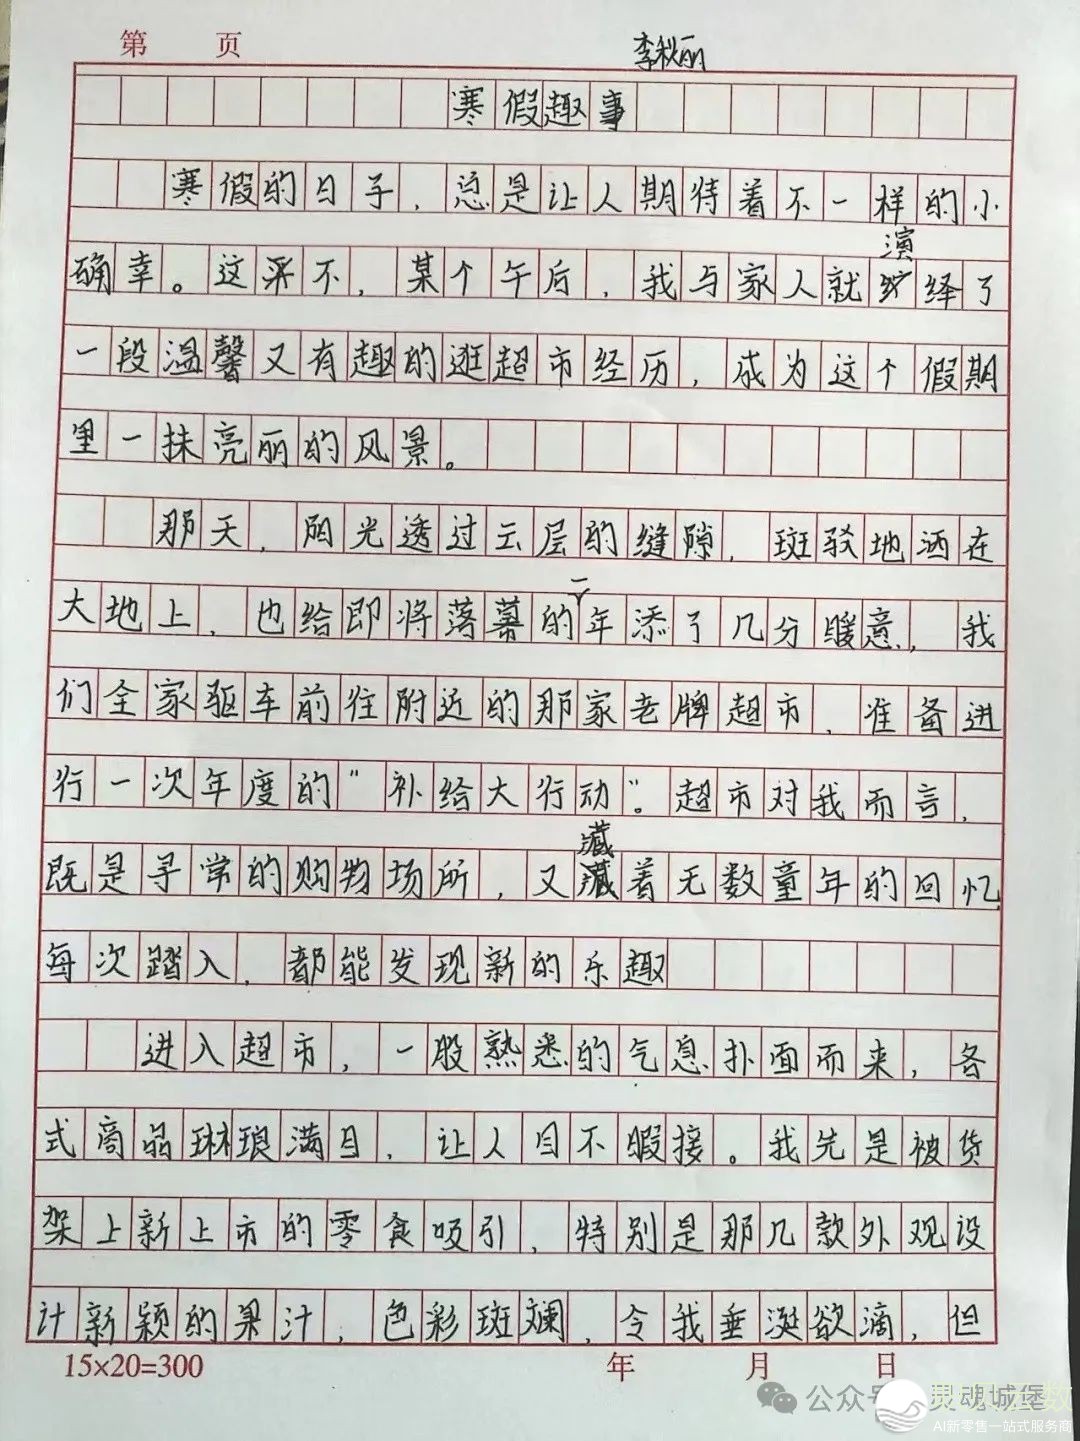 第 页
李秋丽
寒假趣事
寒假的日子，总是让人期待着不一样的小
确幸。这不，某个午后，我与家人就演绎了
一段温馨又有趣的逛超市经历，成为这个假期
里一抹亮丽的风景。
那天，阳光透过云层的缝隙，斑驳地洒在
大地上，也给即将落幕的一年添了几分暖意，我
们全家驱车前往附近的那家老牌超市，准备进
行一次年度的“补给大行动”。超市对我而言，
既是寻常的购物场所，又藏着无数童年的回忆，
每次踏入，都能发现新的乐趣
进入超市，一股熟悉的气息扑面而来，各
式商品琳琅满目，让人目不暇接。我先是被货
架上新上市的零食吸引，特别是那几款外观设
计新颖的果汁，色彩斑斓，令我垂涎欲滴，但
15×20=300
年 月 日
公众号 灵魂城堡
AI新零售一站式服务商